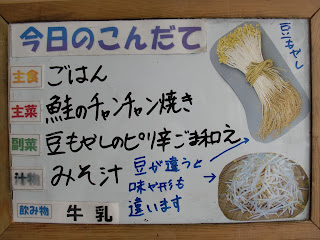 今日のこんだて
主食 ごはん
主菜 鮭のチャンチャン焼き
副菜 豆もやしのピリ辛ごま和え
汁物 みそ汁
飲み物 牛乳
豆もやし
豆が違うと
味や形も
違います